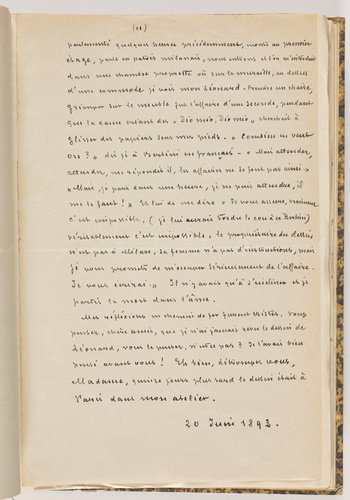 (11)
parlementé quelques heures précédemment, monté au premier
étage, parlé en patois milanais, nous entrons et l'on m'introduit
dans une chambre proprette où sur la muraille, au dessus
d'une commode je vois mon Léonard. Prendre une chaise,
grimper sur le meuble fut l'affaire d'une seconde, pendant
que la dame criant des « Dio mio, Dio mio » cherchait à
glisser des papiers sous mes pieds. « Combien en veut
on? » dis-je à Bertini en français – « Mais attendez,
attendez, me répondit il, les affaires ne se font pas ainsi »
« Mais, je pars dans une heure, je ne puis attendre, il
me le faut! » Et lui de me dire « Je vous assure, vraiment
c'est impossible, (je lui aurais tordu le cou à ce Bertini)
véritablement c'est impossible, le propriétaire du dessin
n'est pas à Milan, sa femme n'a pas d'instructions, mais
je vous promets de m'occuper sérieusement de l'affaire.
Je vous écrirai. » Il n'y avait qu'à s'incliner et je
partis la mort dans l'âme.
Mes réflexions en chemin de fer furent tristes. Vous
pensez, chère amie, que je n'ai jamais revu le dessin de
Léonard, vous le pensez, n'est ce pas? Je l'avais bien
pensé avant vous! Eh bien, détrompez vous,
Madame, quinze jours plus tard le dessin était à
Paris dans mon atelier.
20 Juin 1892.